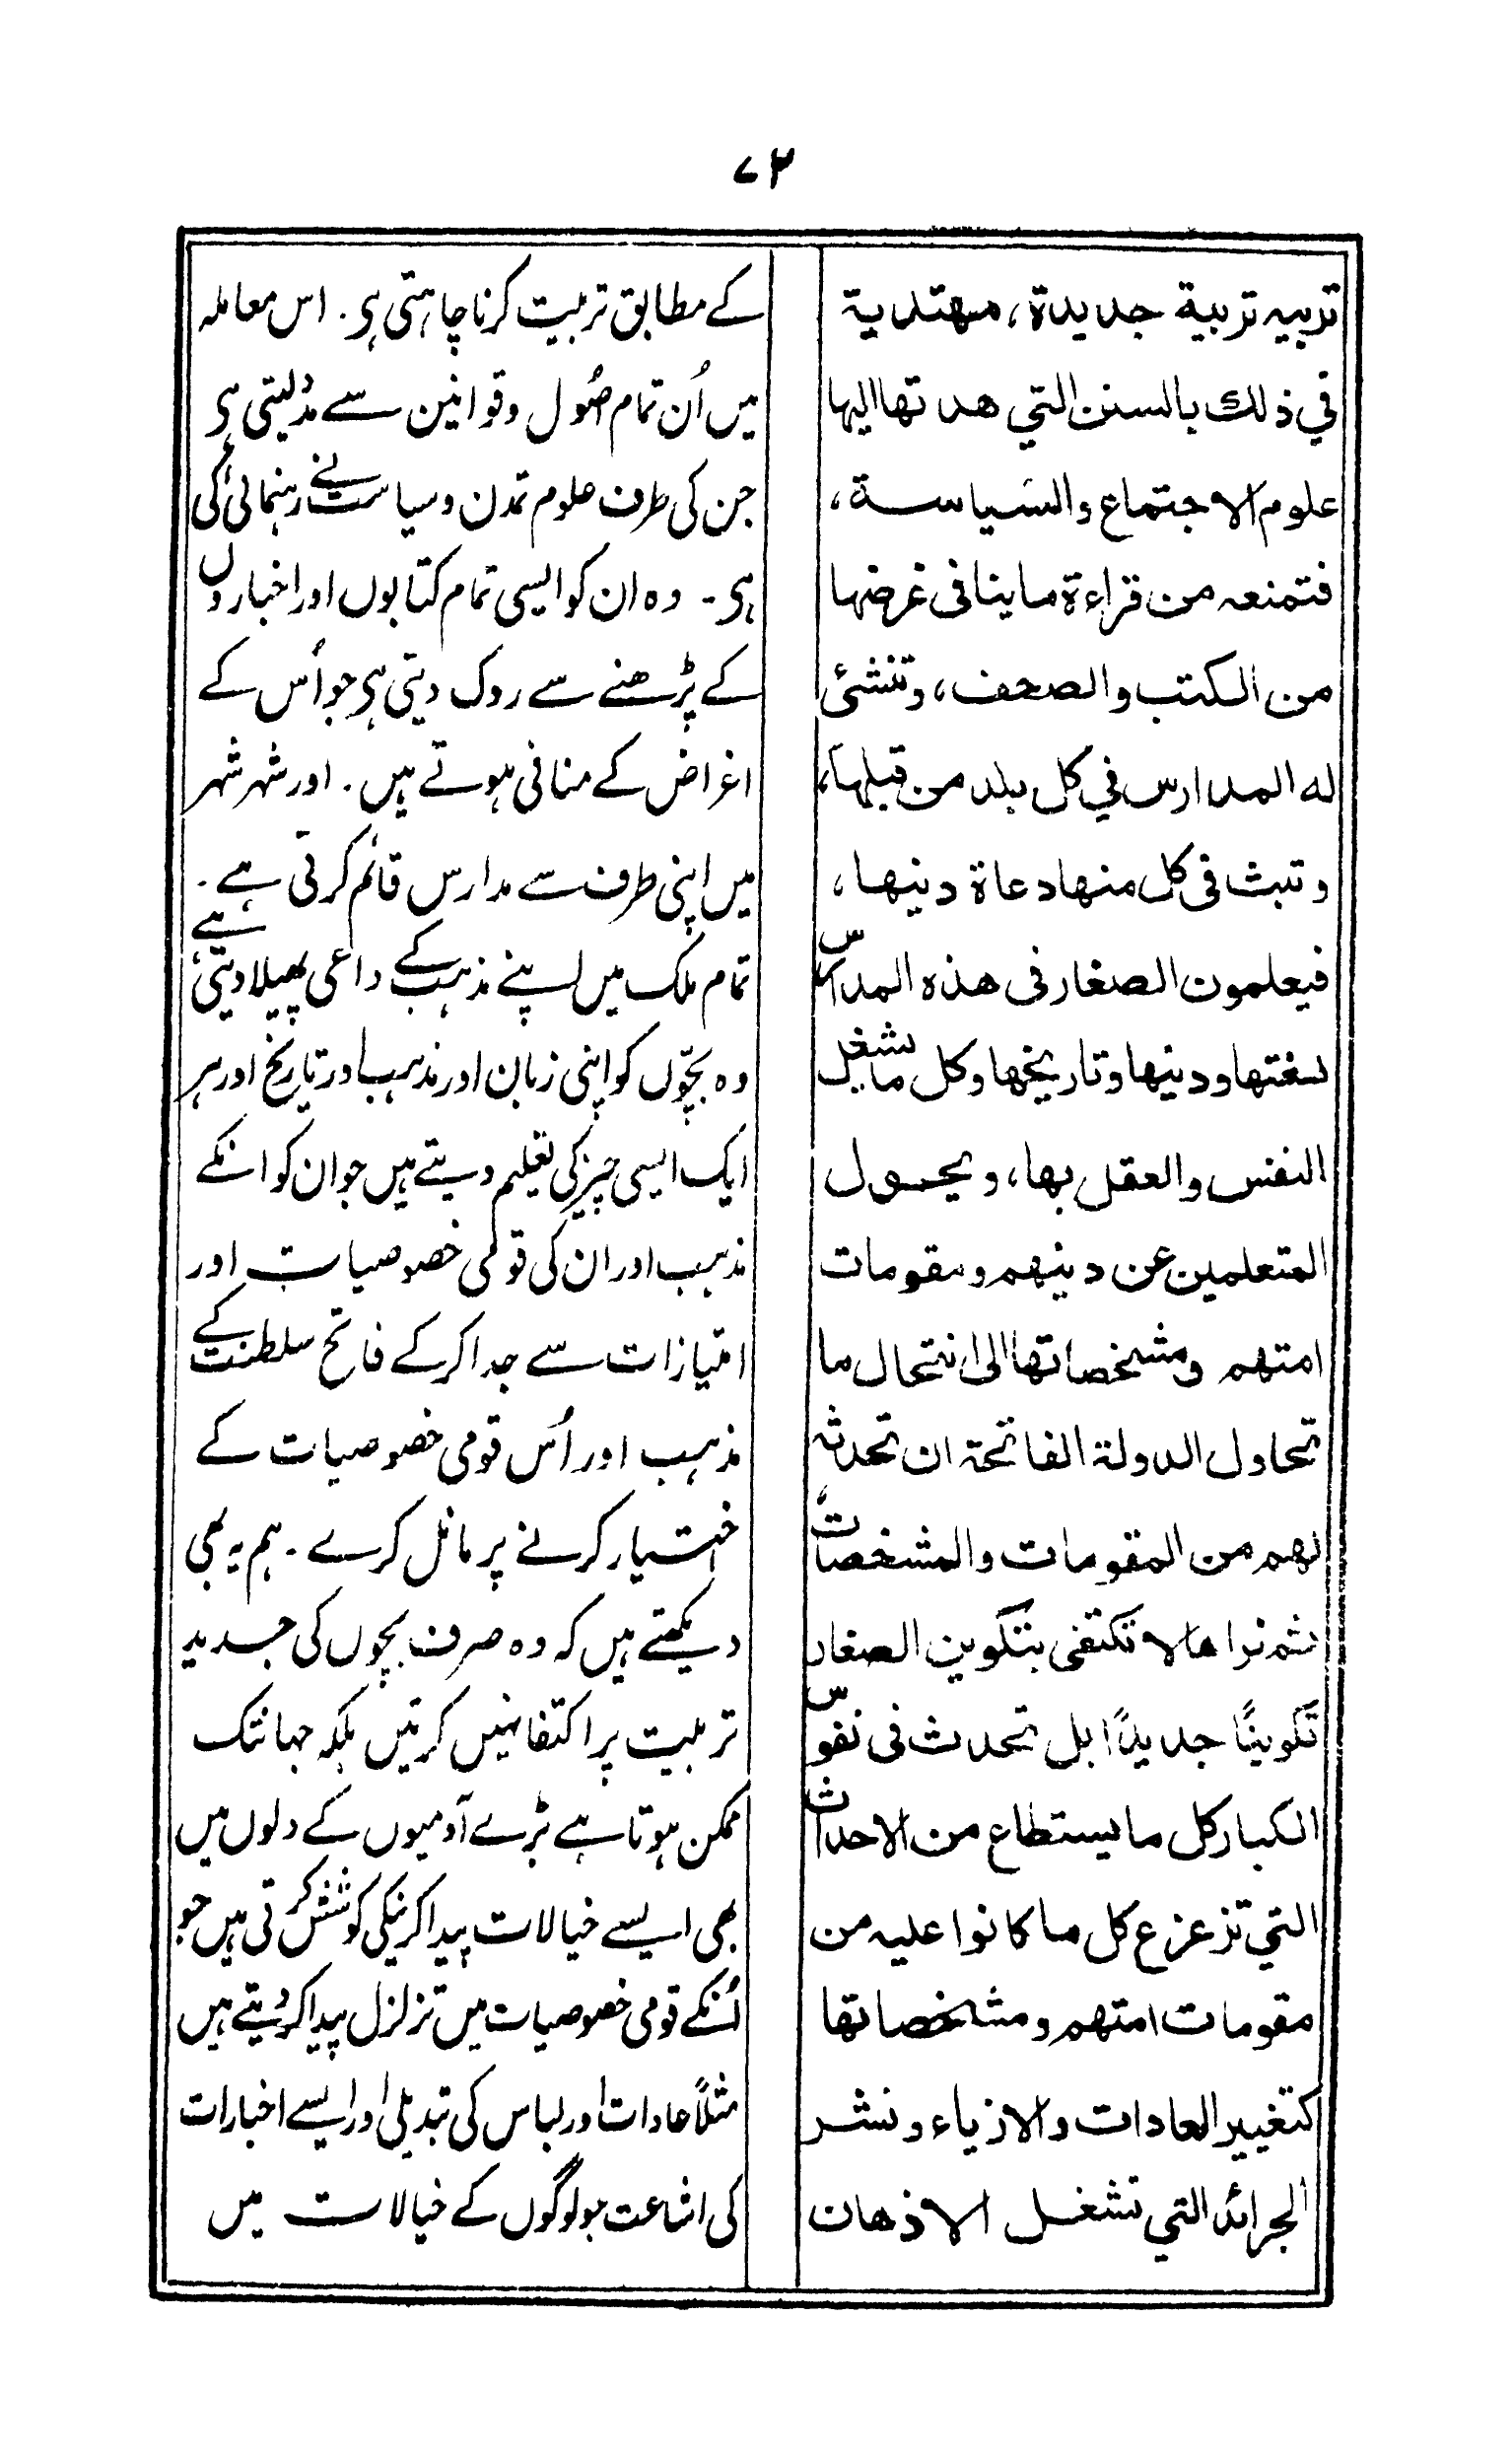 ۷۲
تربيه تربية جديدة، مهتدية
في ذلك بالسنن التي هدتها اليها
علوم الاجتماع والسياسة،
فتمنعه من قراءة ما ينافى غرضها
من الكتب والصحف، وتنشئ
له المدارس في كل بلد من قبلها،
وتبث فى كل منها دعاة دينها،
فيعلمون الصغار فى هذه المدارس
لغتها ودينها وتاريخها وكل ما يشغل
النفس والعقل بها، ويحول
المتعلمين عن دينهم ومقومات
امتهم ومشخصاتها الى انتحال ما
تحاول الدولة الفاتحة ان تحدثه
لهم من المقومات والمشخصات،
ثم نراها لا تكتفى بتكوين الصغار
تكوينًا جديدًا بل تحدث فى نفوس
الكبار كل ما يستطاع من الاحداث
التي تزعزع كل ما كانوا عليه من
مقومات امتهم ومشخصاتها
كتغيير العادات والازياء ونشر
الجرائد التي تشغل الاذهان
کے مطابق تربیت کرنا چاہتی ہی۔ اس معاملہ
میں اُن تمام اصُول وقوانین سے مدد لیتی ہی
جن کی طرف علوم تمدن وسیاست نے رہنمائی کی
ہی۔ وہ ان کو ایسی تمام کتابوں اور اخباروں
کے پڑھنے سے روک دیتی ہی جو اُس کے
اغراض کے منافی ہوتے ہیں۔ اور شہر شہر
میں اپنی طرف سے مدارس قائم کرتی ہے۔
تمام ملک میں اپنے مذہب کے داعی پھیلا دیتی ہے
وہ بچّوں کو اپنی زبان اور مذہب اور تاریخ اور ہر
ایک ایسی چیز کی تعلیم دیتے ہیں جو ان کو انکے
مذہب اور ان کی قومی خصوصیات اور
امتیازات سے جدا کرکے فاتح سلطنت کے
مذہب اور اُس قومی خصوصیات کے
اختیار کرنے پر مائل کرے۔ ہم یہ بھی
دیکھتے ہیں کہ وہ صرف بچوں کی جدید
تربیت پر اکتفا نہیں کرتیں بلکہ جہانتک
ممکن ہوتا ہے بڑے آدمیوں کے دلوں میں
بھی ایسے خیالات پیدا کرنیکی کوشش کرتی ہیں جو
اُنکے قومی خصوصیات میں تزلزل پیدا کردیتے ہیں
مثلاً عادات اور لباس کی تبدیلی اور ایسے اخبارات
کی اشاعت جو لوگوں کے خیالات میں